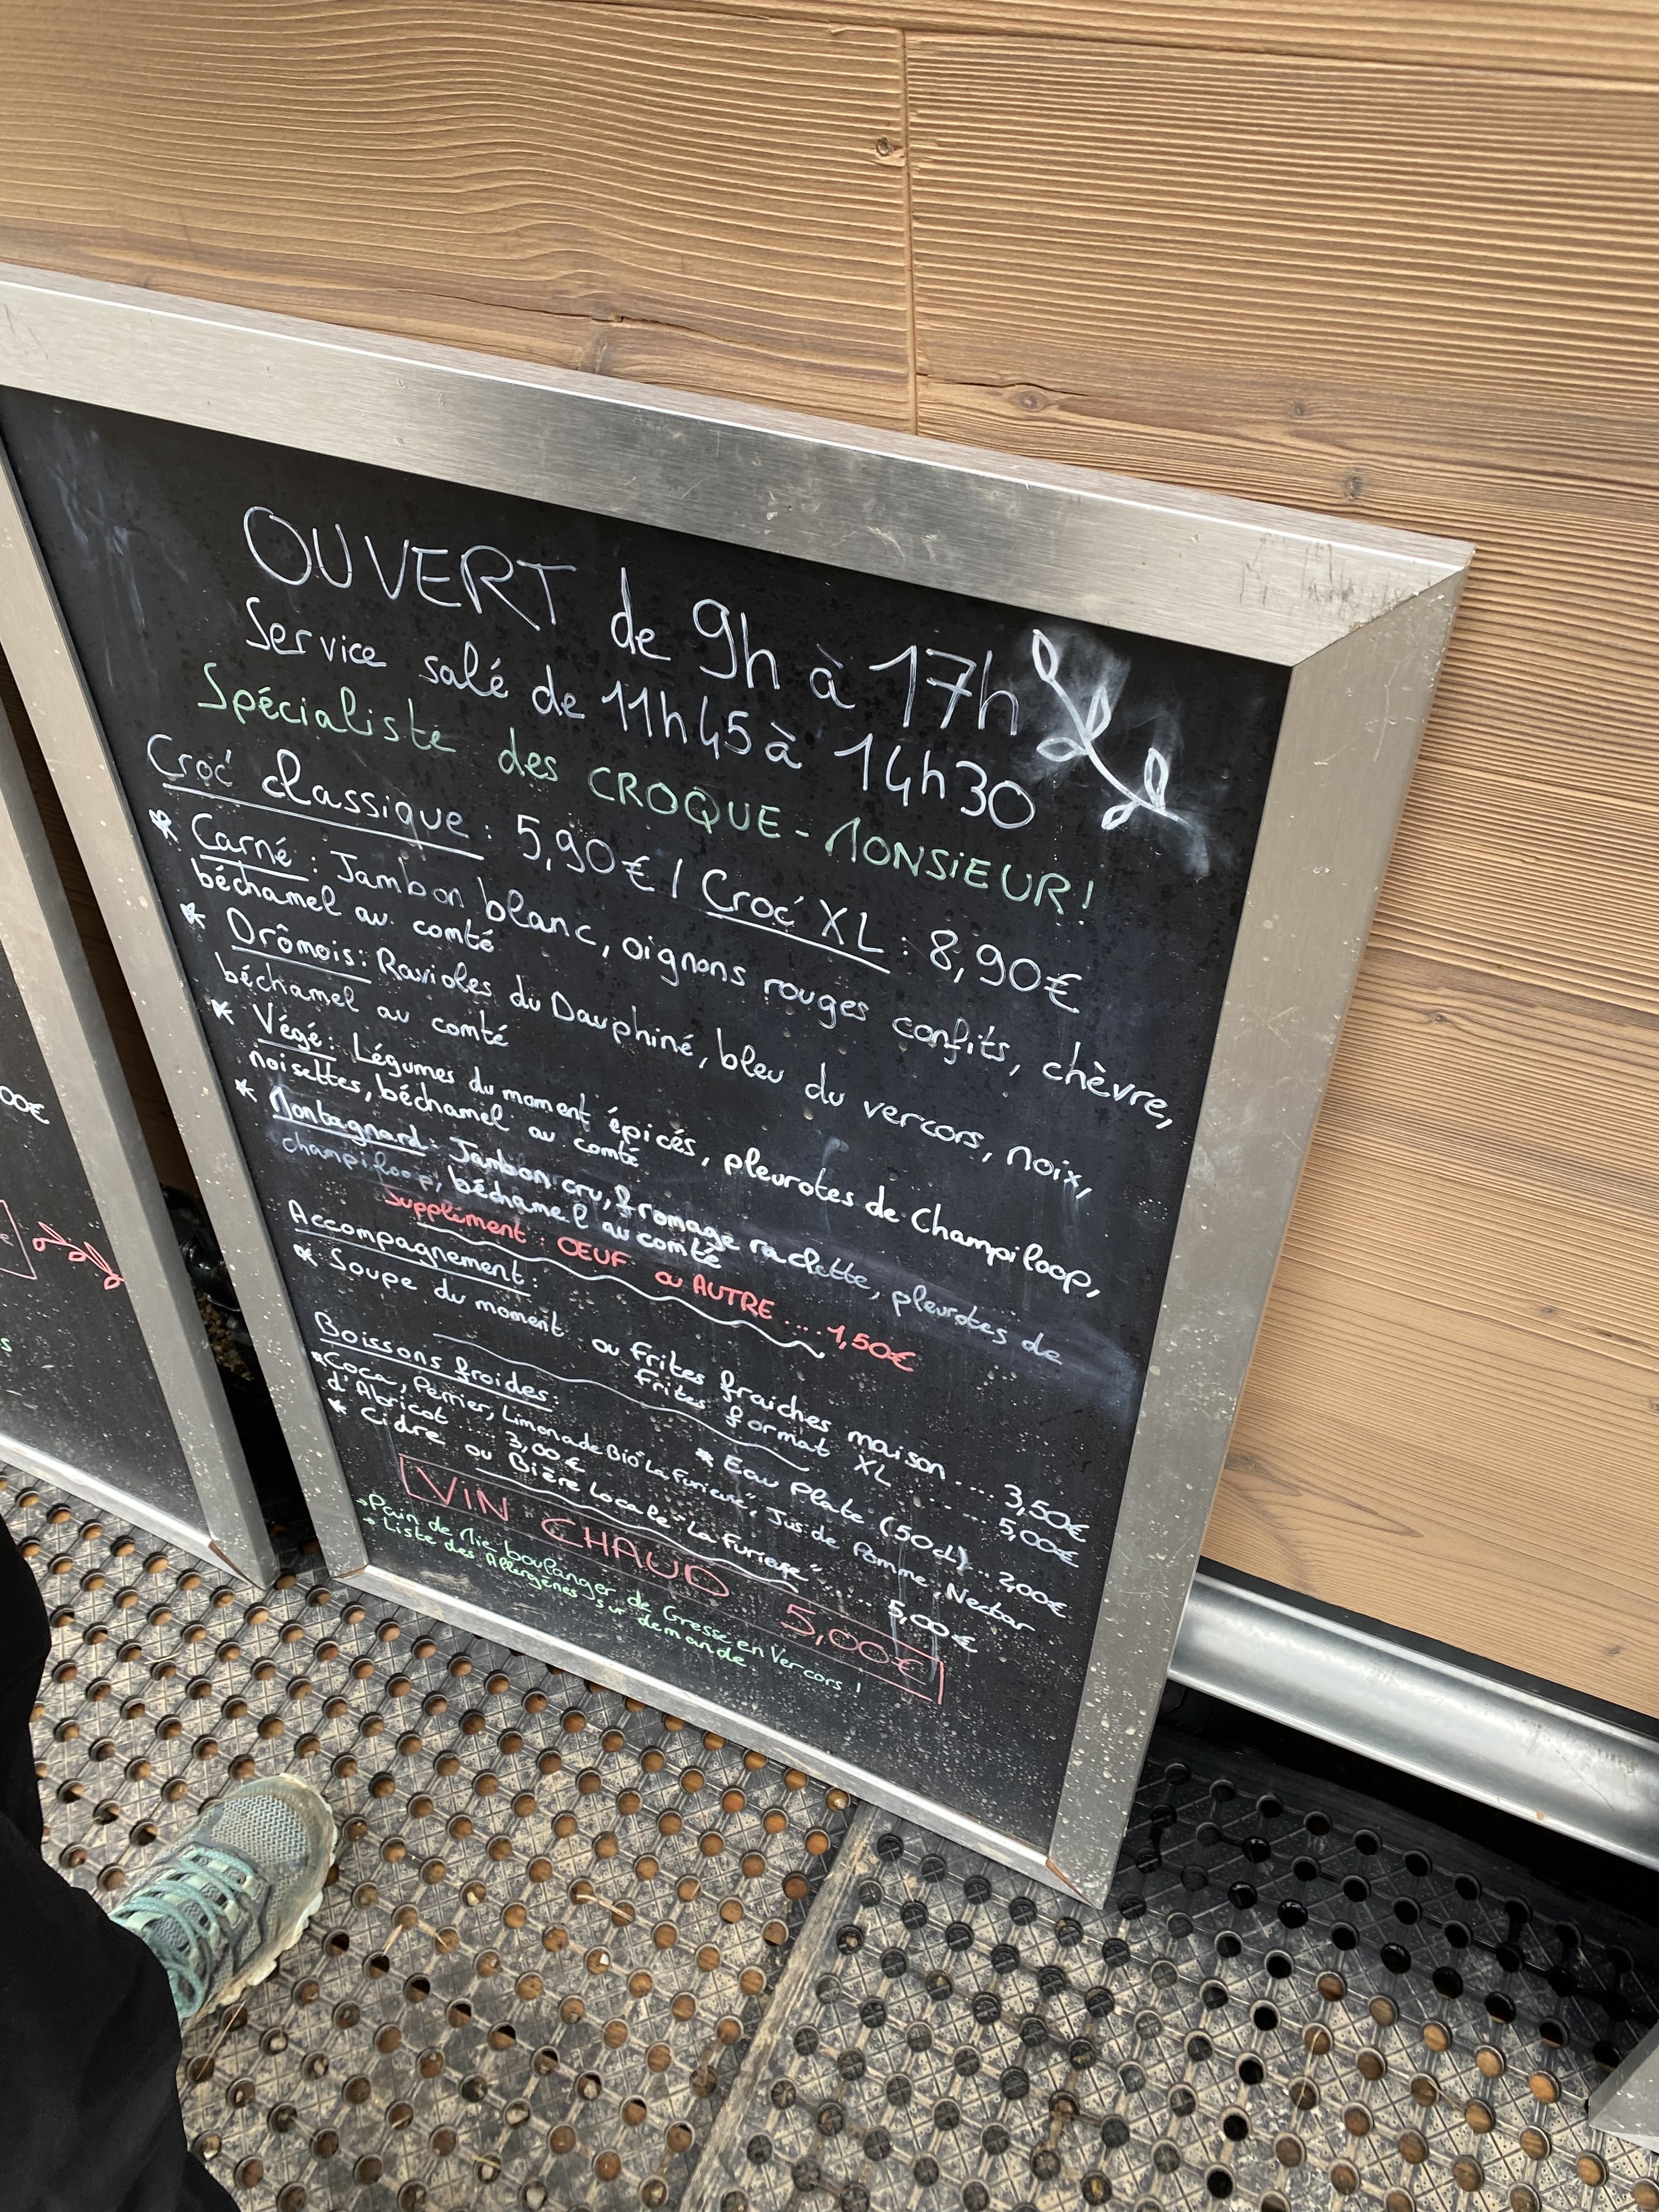 OUVERT de 9h à 17h
Service salé de 11h45 à 14h30
Spécialiste des CROQUE-MONSIEUR!
Croc' classique : 5,90€ / Croc' XL : 8,90€
* Carné : Jambon blanc, oignons rouges confits, chèvre,
béchamel au comté
* Drômois : Ravioles du Dauphiné, bleu du vercors, noix,
béchamel au comté
* Végé : Légumes du moment épicés, pleurotes de Champiloop,
noisettes, béchamel au comté
* Montagnard : Jambon cru, fromage raclette, pleurotes de
champiloop, béchamel au comté
Supplément : OEUF ou AUTRE .... 1,50€
Accompagnement :
* Soupe du moment ou Frites fraiches maison .... 3,50€
Frites format XL ....... 5,00€
Boissons froides :
* Eau Plate (50cl) .. 2,00€
* Coca, Perrier, Limonade Bio "La Furieuse", Jus de Pomme, Nectar
d'Abricot .... 3,00€
* Cidre ou Bière Locale "La Furieuse" .... 5,00€
VIN CHAUD 5,00€
→ Pain de Mie boulanger de Gresse en Vercors !
→ Liste des Allergènes sur demande.
00€